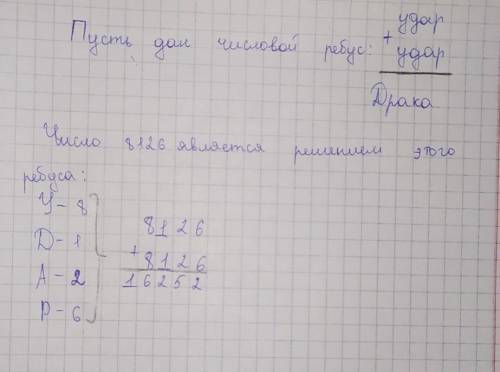 удар
Пусть дан числовой ребус: + удар
Драка
Число 8126 является решением этого
ребуса:
У - 8
Д - 1
А - 2
Р - 6
8126
+ 8126
16252